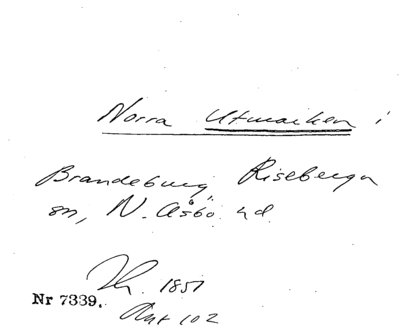 Norra Utmarken i
Brandeburg, Riseberga
sn, N. Åsbo hd
1851
Nr 7339.
Ant 102